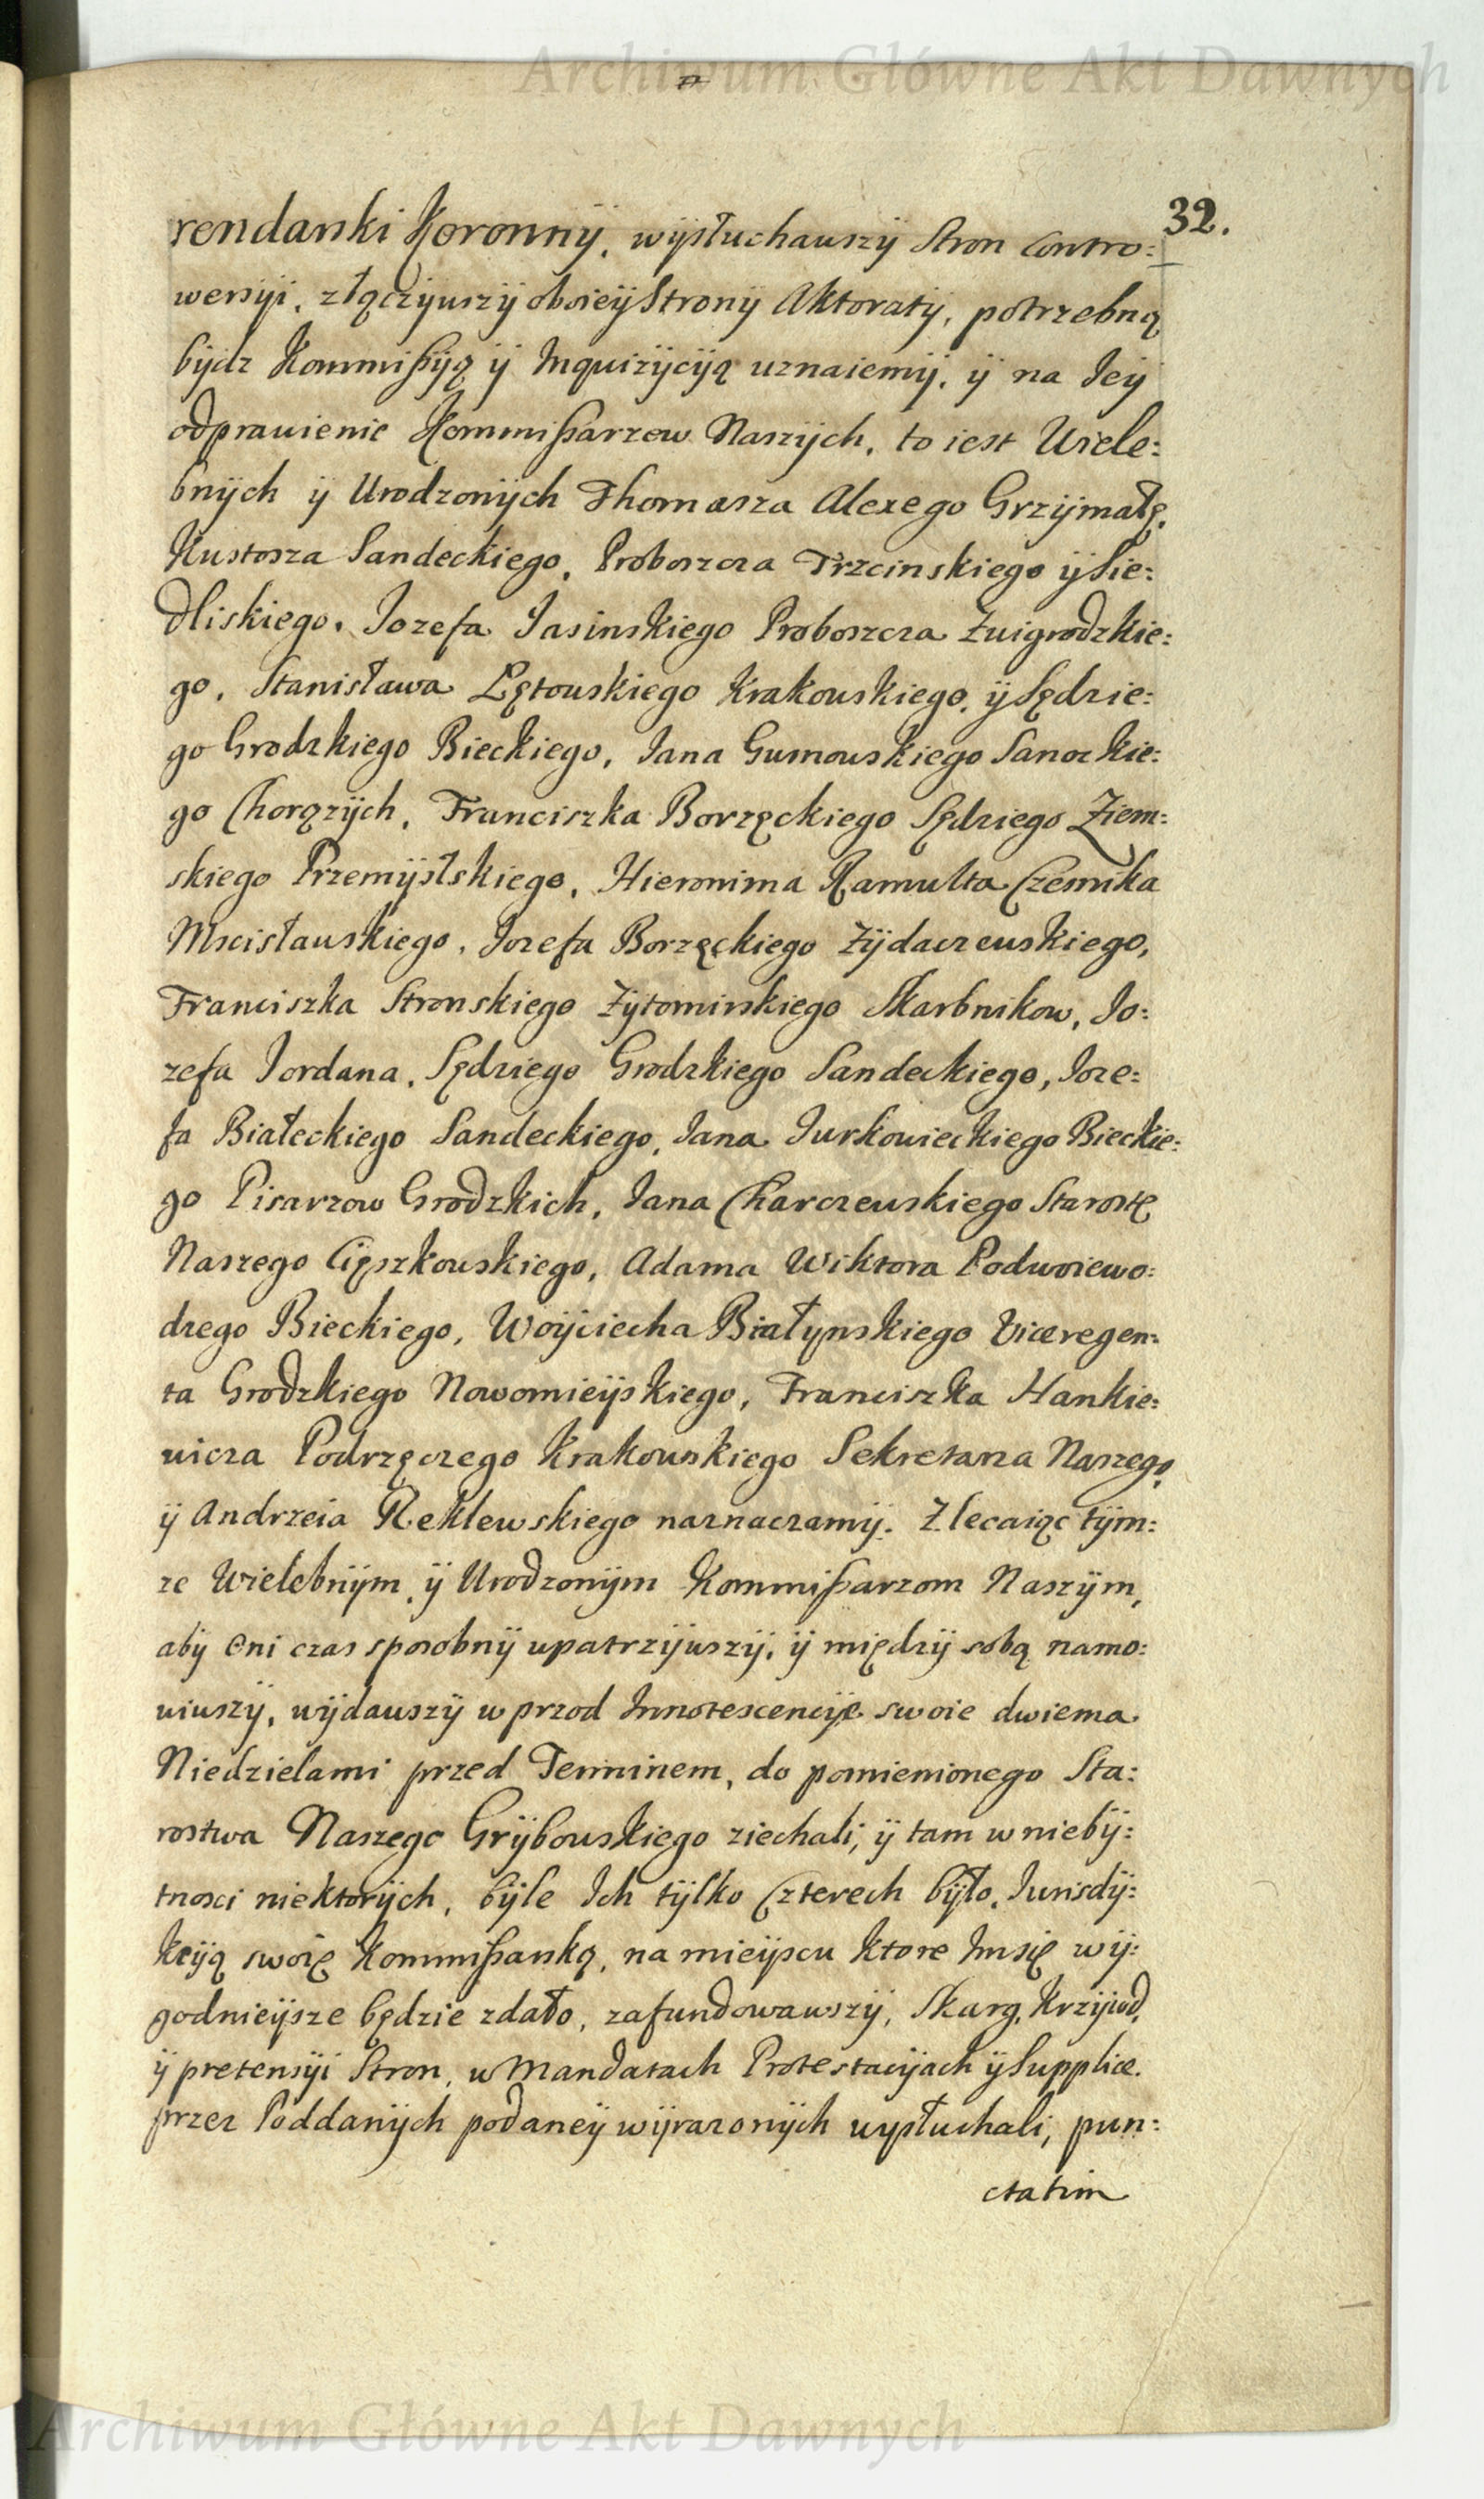 Archiwum Główne Akt Dawnych
32.
rendarski Koronnÿ, wÿsłuchawszÿ Stron Contro:
wersÿi, złączÿwszÿ oboieÿ Stronÿ Aktoratÿ, potrzebną
bÿdz Kommißÿą ÿ Inquizÿcÿą uznaiemÿ, ÿ na Ieÿ
odprawienie Kommißarzow Naszÿch, to iest Wiele:
bnÿch ÿ Urodzonÿch Thomasza Alexego Grzÿmałę,
Kustosza Sandeckiego, Proboszcza Trzcinskiego ÿ Sie:
dliskiego, Iozefa Iasinskiego Proboszcza Zmigrodzkie:
go, Stanisława Łętowskiego Krakowskiego, ÿ Sędzie:
go Grodzkiego Bieckiego, Iana Gumowskiego Sanockie:
go Chorązÿch, Franciszka Borzęckiego Sędziego Ziem:
skiego Przemÿslskiego, Hieronima Ramułta Czesnika
Mscisławskiego, Iozefa Borzęckiego Zÿdaczewskiego,
Franciszka Stronskiego Zÿtomirskiego Skarbnikow, Io:
zefa Iordana, Sędziego Grodzkiego Sandeckiego, Ioze:
fa Białeckiego Sandeckiego, Iana Iurkowieckiego Bieckie:
go Pisarzow Grodzkich, Iana Charczewskiego Starostę
Naszego Cięszkowskiego, Adama Wiktora Podwoiewo:
dzego Bieckiego, Woÿciecha Białynskiego Viceregen:
ta Grodzkiego Nowomieÿskiego, Franciszka Hankie:
wicza Podrzęczego Krakowskiego Sekretarza Naszego,
ÿ Andrzeia Reklewskiego naznaczamÿ. Zlecaiąc tÿm:
ze Wielebnÿm, ÿ Urodzonÿm Kommißarzom Naszÿm,
abÿ Oni czas sposobnÿ upatrzÿwszÿ, ÿ międzÿ sobą namo:
wiwszÿ, wÿdawszÿ wprzod Innotescencÿe swoie dwiema
Niedzielami przed Terminem, do pomienionego Sta:
rostwa Naszego Grÿbowskiego ziechali, ÿ tam w niebÿ:
tnosci niektorÿch, bÿle Ich tÿlko Czterech bÿło, Iurisdÿ:
kcÿą swoię Kommißarską, na mieÿscu ktore Im się wÿ:
godnieÿsze będzie zdało, zafundowawszÿ, Skarg, Krzÿwd,
ÿ pretensÿi Stron, w Mandatach Protestacÿach ÿ Supplice.
przez Poddanÿch podaneÿ wÿrazonÿch wysłuchali, pun:
ctatim
Archiwum Główne Akt Dawnych